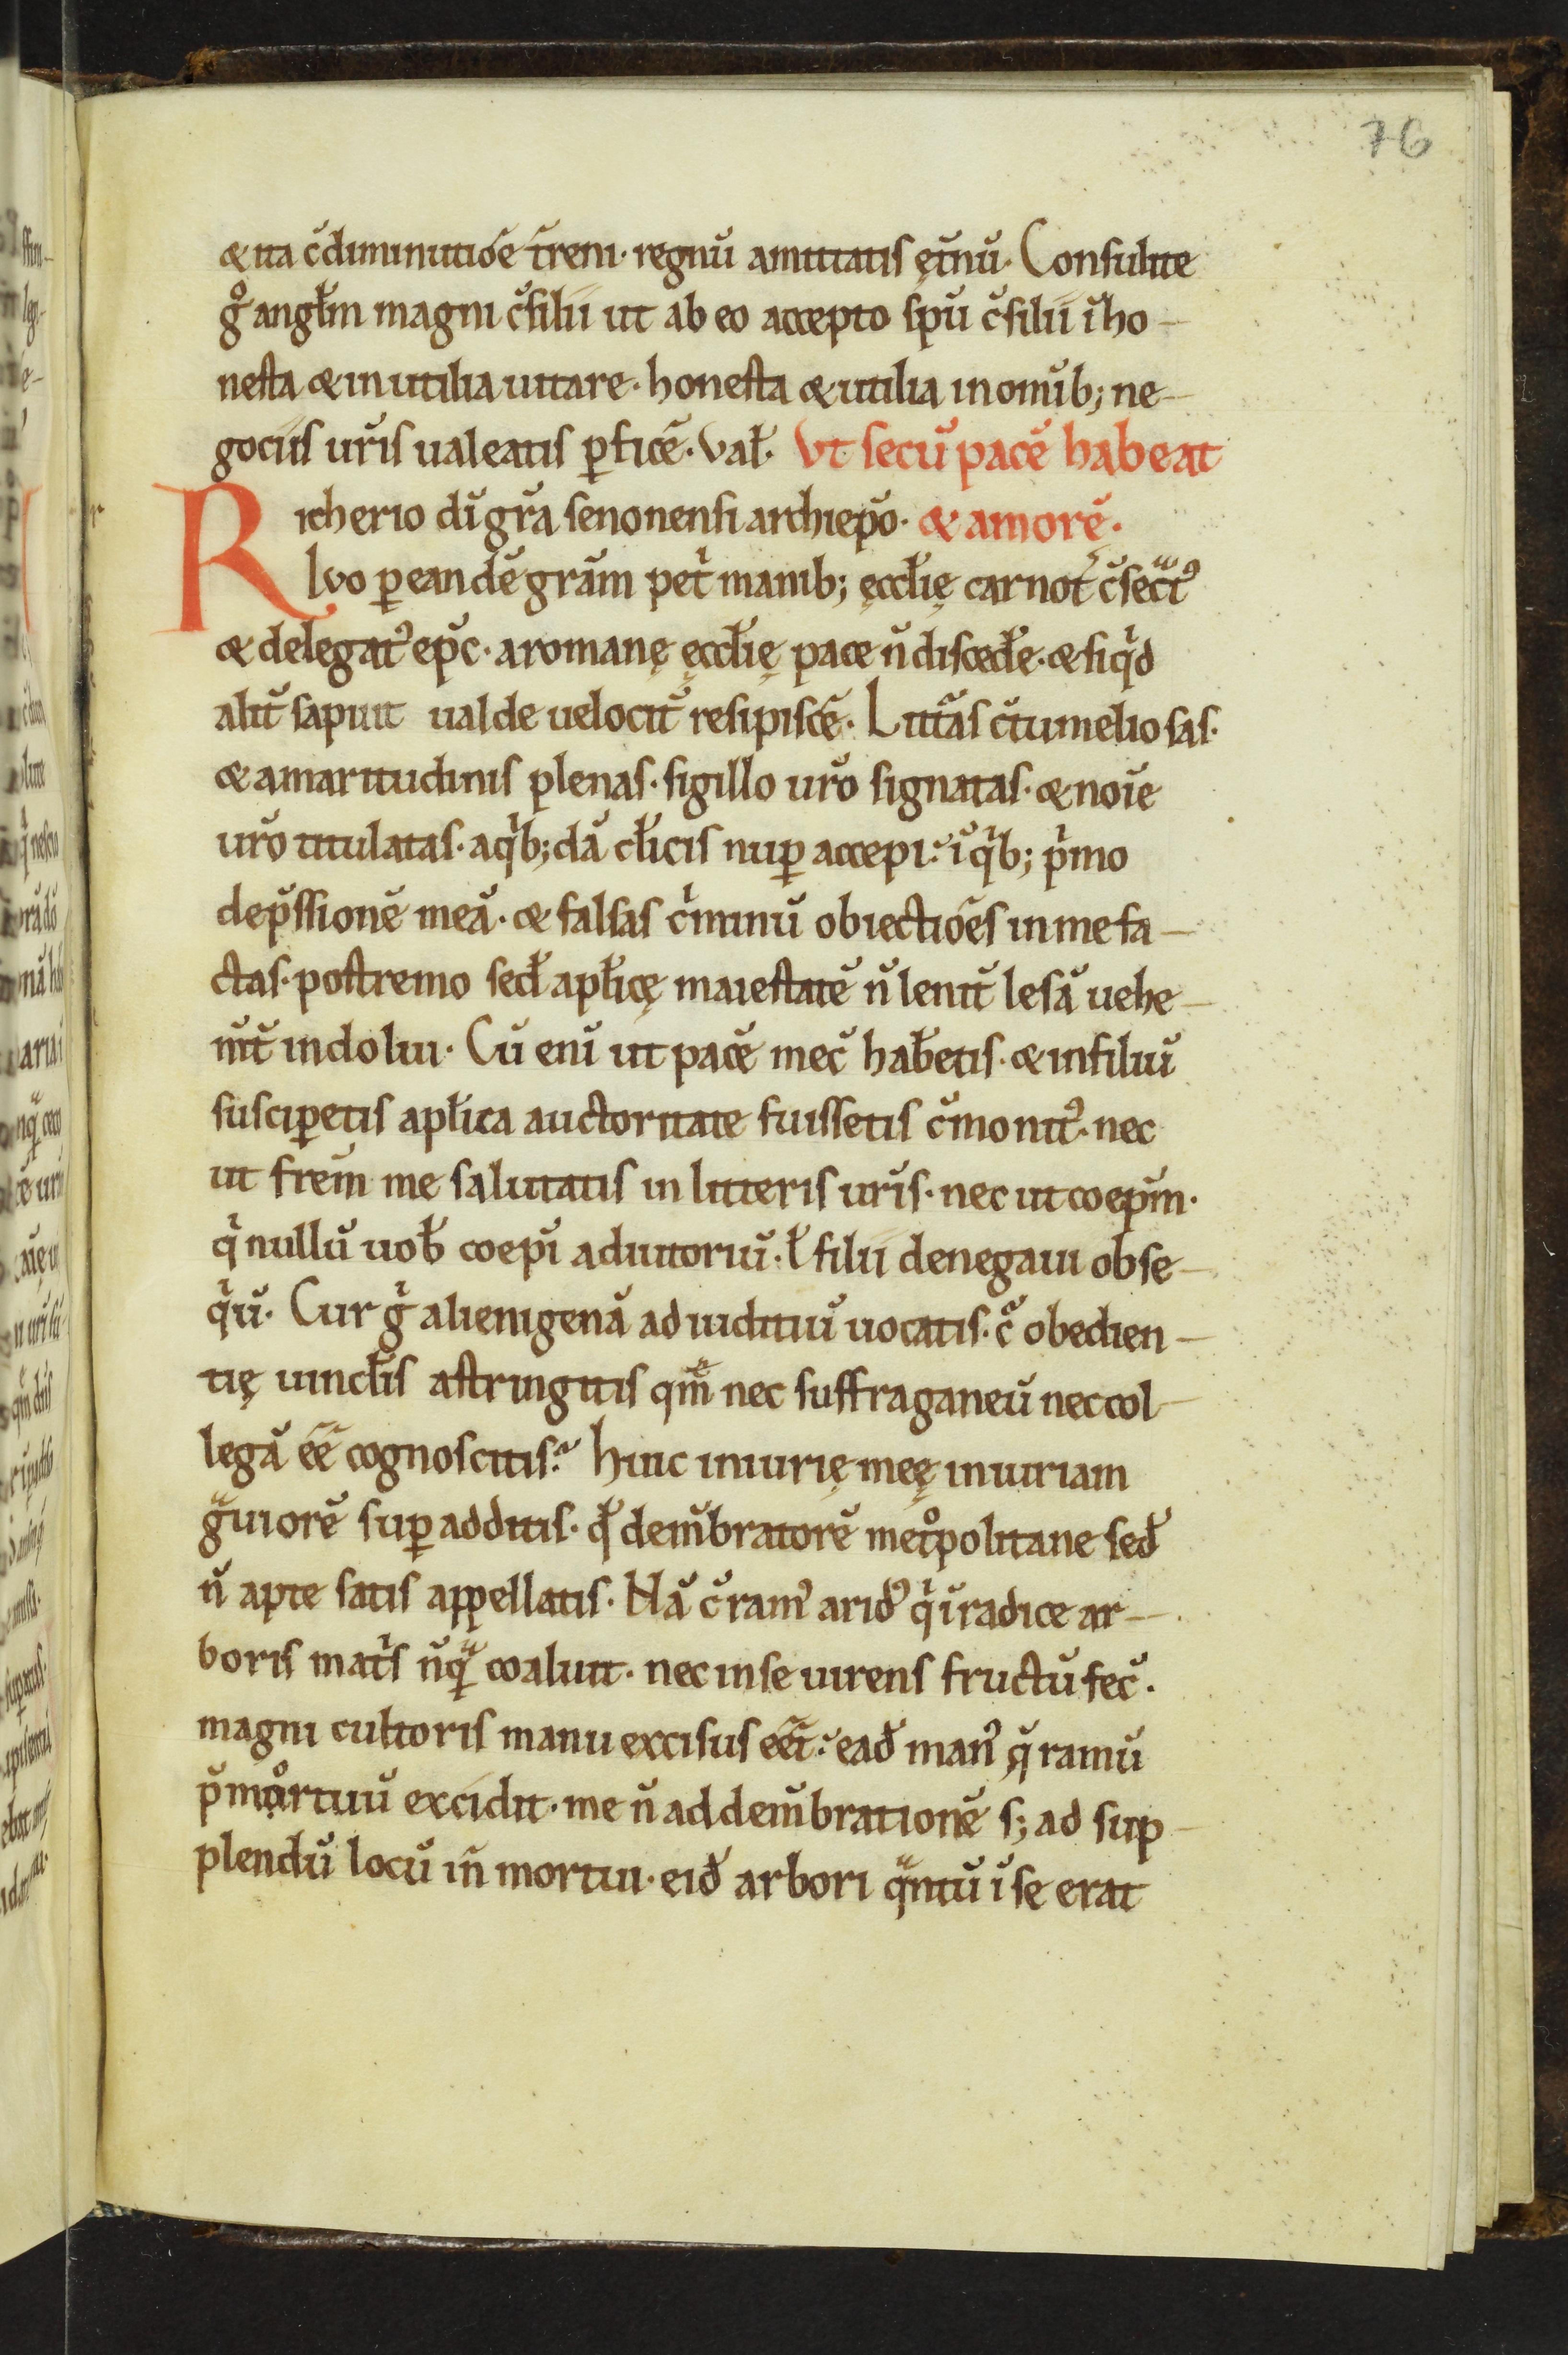 76
& ita c̄diminutiōe t̄reni· regnū amittatis ęt̄nū· Consulite
gͦ angl̄m magni c̄silii ut ab eo accepto sp̄u c̄silii īho-
nesta & inutilia uitare· honesta & utilia in om̄ib; ne-
gociis ur̄is ualeatis ꝑficē· Val̄· Vt secū pacē habeat
Richerio dī gr̄a senonensi archiep̄o· & amorē·
Ivo ꝑ eandē gr̄am pet̄ manib; ęccl̄ię carnot̄ c̄sectꝰ
& delegatꝰ ep̄c· a romanę ęccl̄ię pace n̄ disced̄e· & siqͥd
alit̄ sapuit ualde uelocit̄ resipiscē· Litt̄as c̄tumeliosas·
& amaritudinis plenas· sigillo ur̄o signatas· & noīe
ur̄o titulatas· a qͥb;dā cl̄icis nuꝑ accepi: ī qͥb; pͥmo
dep̄ssionē meā· & falsas cͥminū obiectiōes in me fa-
ctas· postremo sed̄ apl̄icę maiestatē n̄ lenit̄ lesā uehe-
m̄t̄ indolui· Cū eni ut pacē mec̄ hab̄etis· & in filiū
susciꝑetis apl̄ica auctoritate fuissetis c̄monitꝰ· nec
ut fr̄em me salutatis in litteris ur̄is· nec ut coep̄m·
qͥ nullū uob̄ coep̄i adiutoriū· l̄ filii denegaui obse-
qͥū· Cur gͥ alienigenā ad uiditiū uocatis· cͣ obedien-
tię uincl̄is astringitis qm̄ nec suffraganeū nec col-
legā ēē cognoscitis? huic iniurię meę iniuriam
gͣuiorē suꝑ additis· qd̄ dem̄bratorē metͦpolitane sed̄
n̄ apte satis appellatis· Nā c̄ ramꝰ aridꝰ qͥ ī radice ar-
boris matͥs nūqͣ coaluit· nec in se uirens fructū fec̄·
magni cultoris manu excisus eēt: ead̄ manꝰ q̄ ramū
p̄mortuū excidit· me n̄ ad dem̄brationē s; ad sup-
plendū locū in̄ mortui· eid̄ arbori qͣntū ī se erat